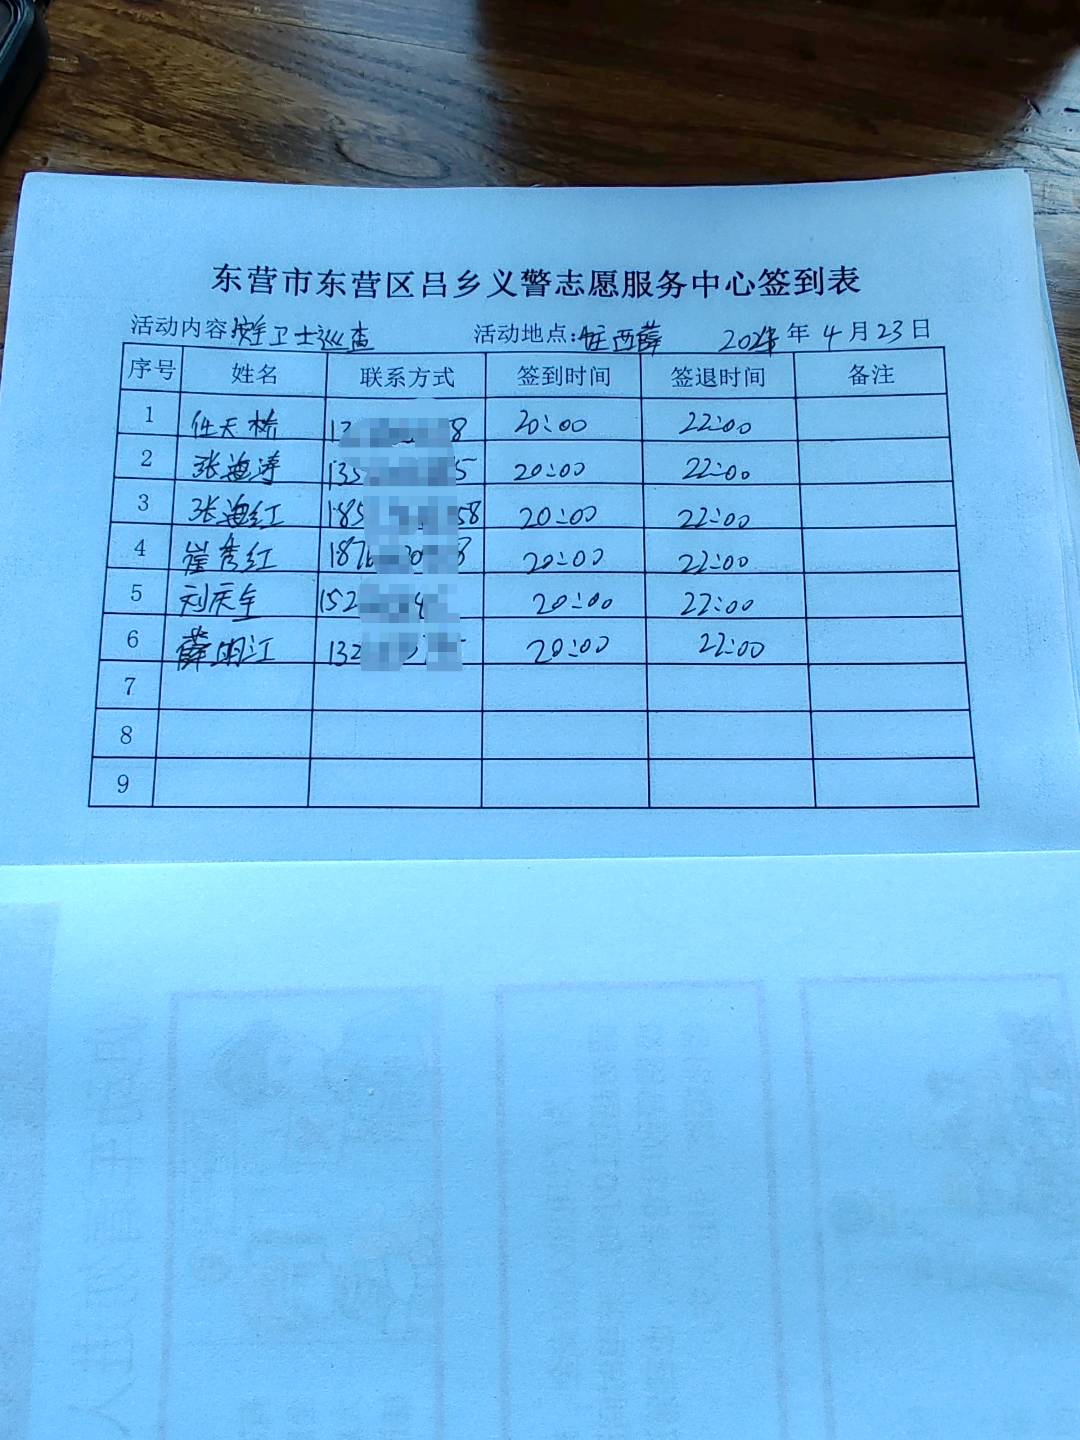 东营市东营区吕乡义警志愿服务中心签到表
活动内容 卫士巡查 活动地点: 西薛 202 年 4 月 23 日
序号 姓名 联系方式 签到时间 签退时间 备注
1 任天桥 20:00 22:00
2 张海涛 135 5 20:00 22:00
3 张海红 185 58 20:00 22:00
4 崔秀红 187 8 20:00 22:00
5 刘庆全 152 20:00 22:00
6 薛明江 132 20:00 22:00
7
8
9